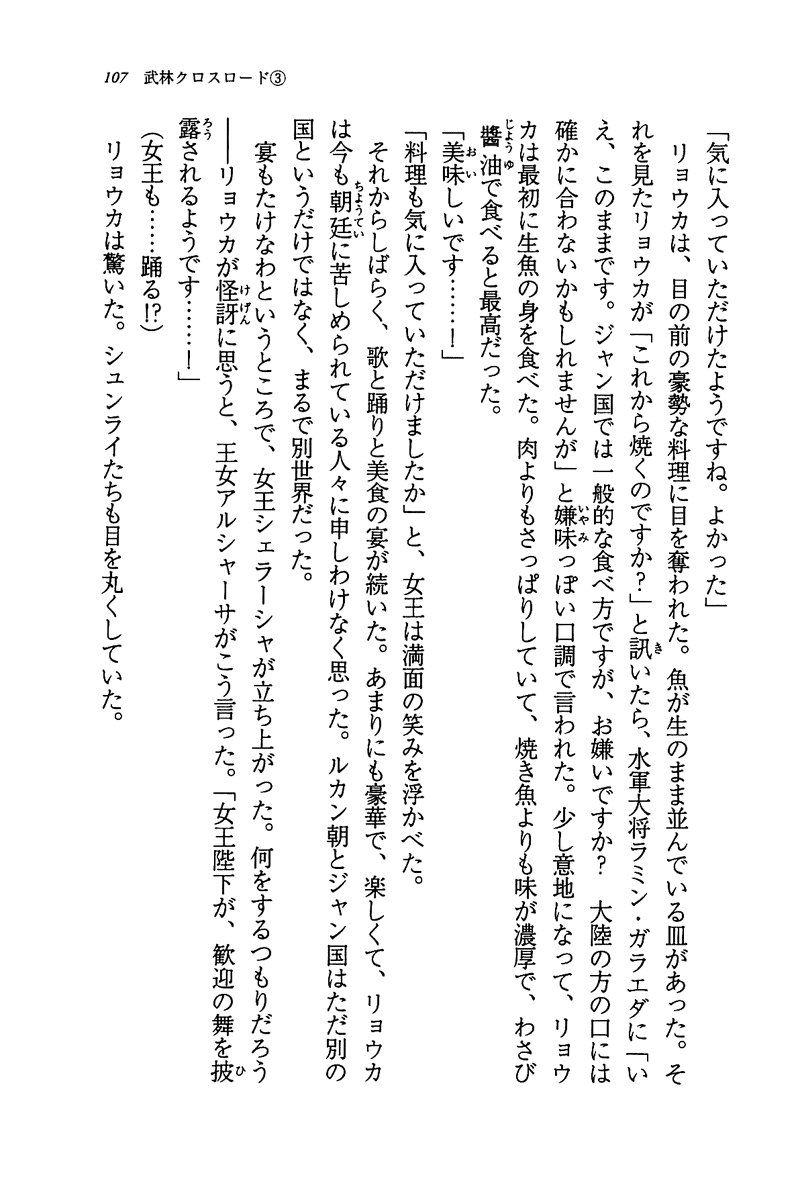 107 武林クロスロード③
「気に入っていただけたようですね。よかった」
　リョウカは、目の前の豪勢な料理に目を奪われた。魚が生のまま並んでいる皿があった。そ
れを見たリョウカが「これから焼くのですか?」と訊いたら、水軍大将ラミン・ガラエダに「い
え、このままです。ジャン国では一般的な食べ方ですが、お嫌いですか?　大陸の方の口には
確かに合わないかもしれませんが」と嫌味っぽい口調で言われた。少し意地になって、リョウ
カは最初に生魚の身を食べた。肉よりもさっぱりしていて、焼き魚よりも味が濃厚で、わさび
醬油で食べると最高だった。
「美味しいです……!」
「料理も気に入っていただけましたか」と、女王は満面の笑みを浮かべた。
　それからしばらく、歌と踊りと美食の宴が続いた。あまりにも豪華で、楽しくて、リョウカ
は今も朝廷に苦しめられている人々に申しわけなく思った。ルカン朝とジャン国はただ別の
国というだけではなく、まるで別世界だった。
　宴もたけなわというところで、女王シェラーシャが立ち上がった。何をするつもりだろう
――リョウカが怪訝に思うと、王女アルシャーサがこう言った。「女王陛下が、歓迎の舞を披
露されるようです……!」
（女王も……踊る!?）
　リョウカは驚いた。シュンライたちも目を丸くしていた。